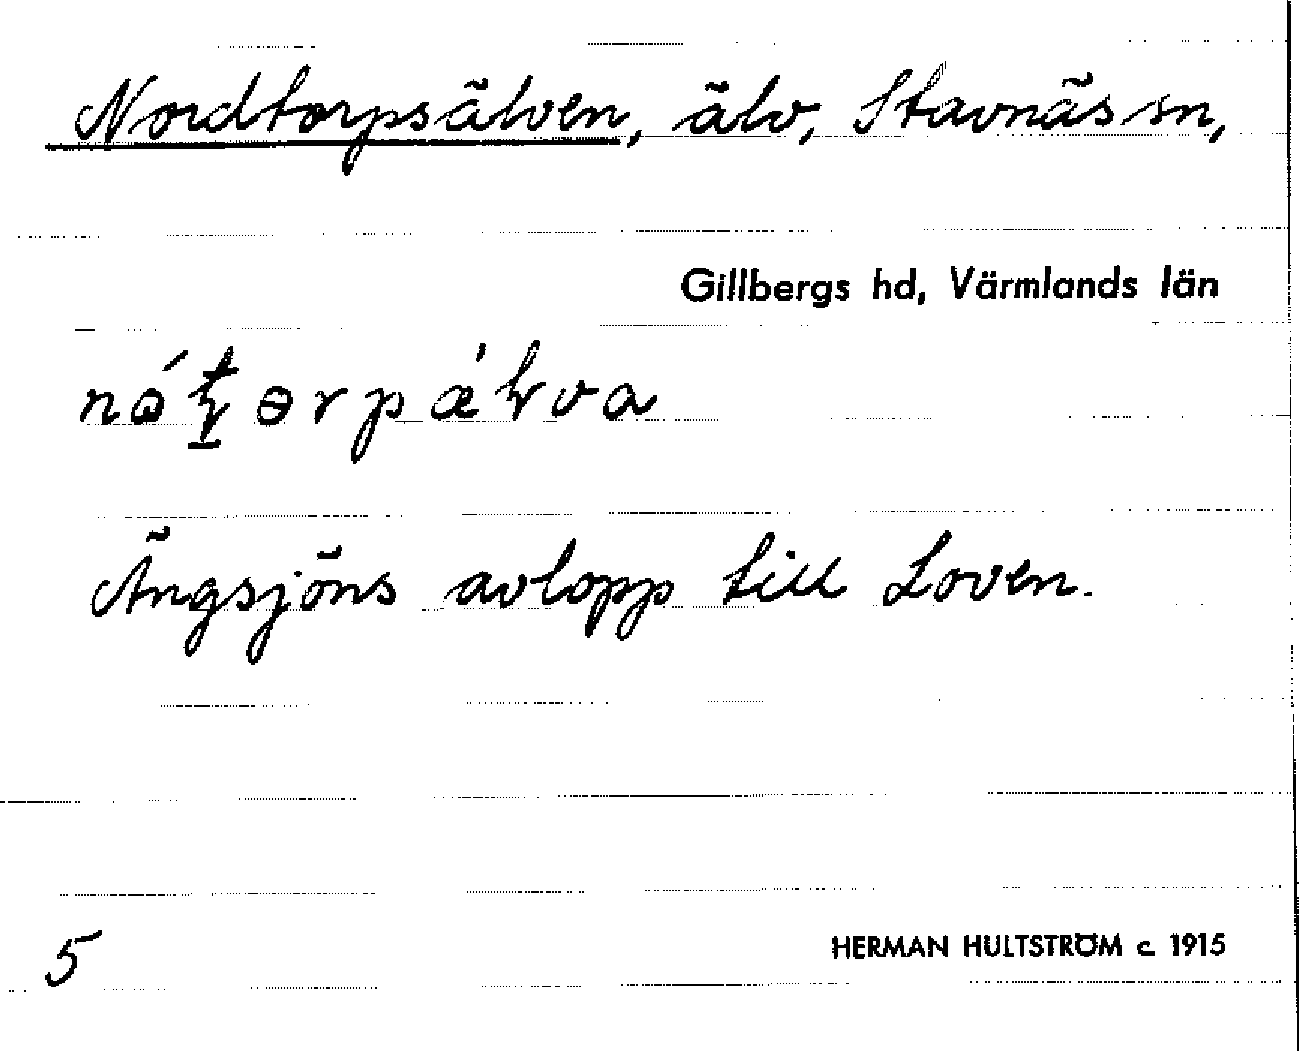 Nordtorpsälven, älv, Stavnäs sn,
Gillbergs hd, Värmlands län
Ängsjöns avlopp till Loven.
5
HERMAN HULTSTRÖM c. 1915